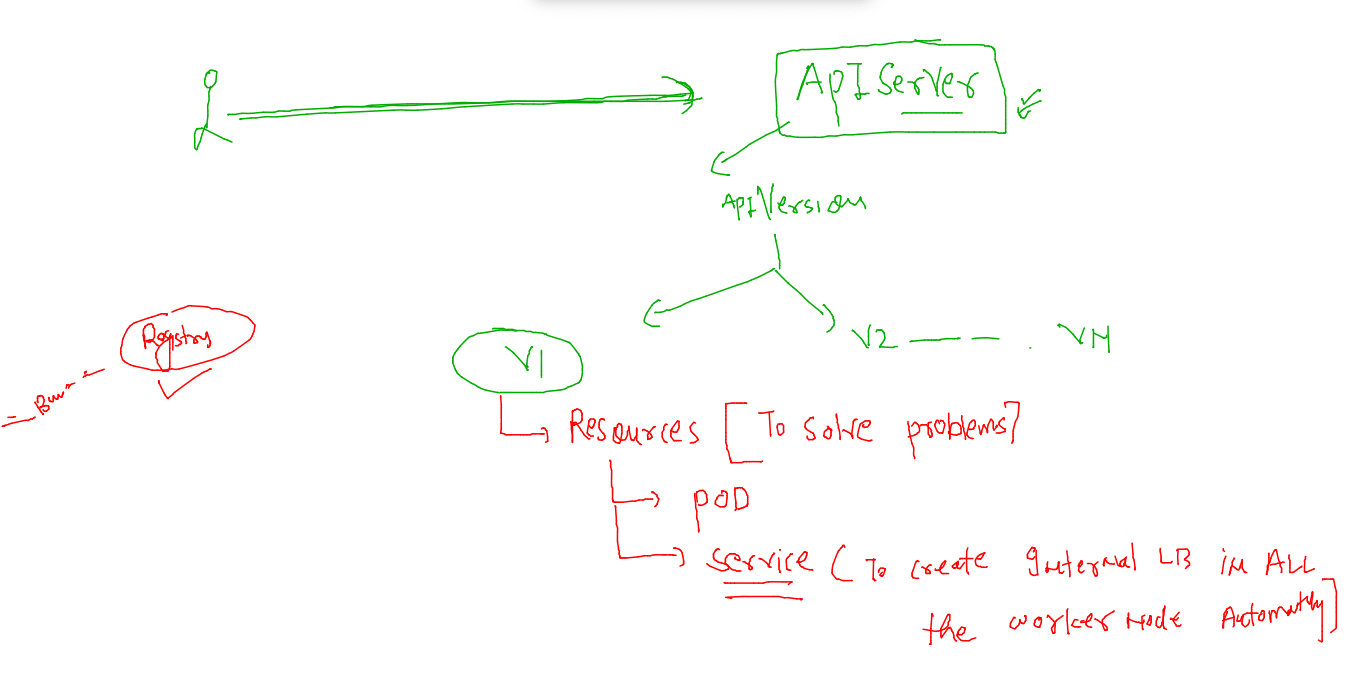 ApI Server
ApI Version
Registry
V1
V2 — — . VM
Resources [To solve problems]
POD
Service ( To create Internal LB in ALL
the worker Node Automatically]